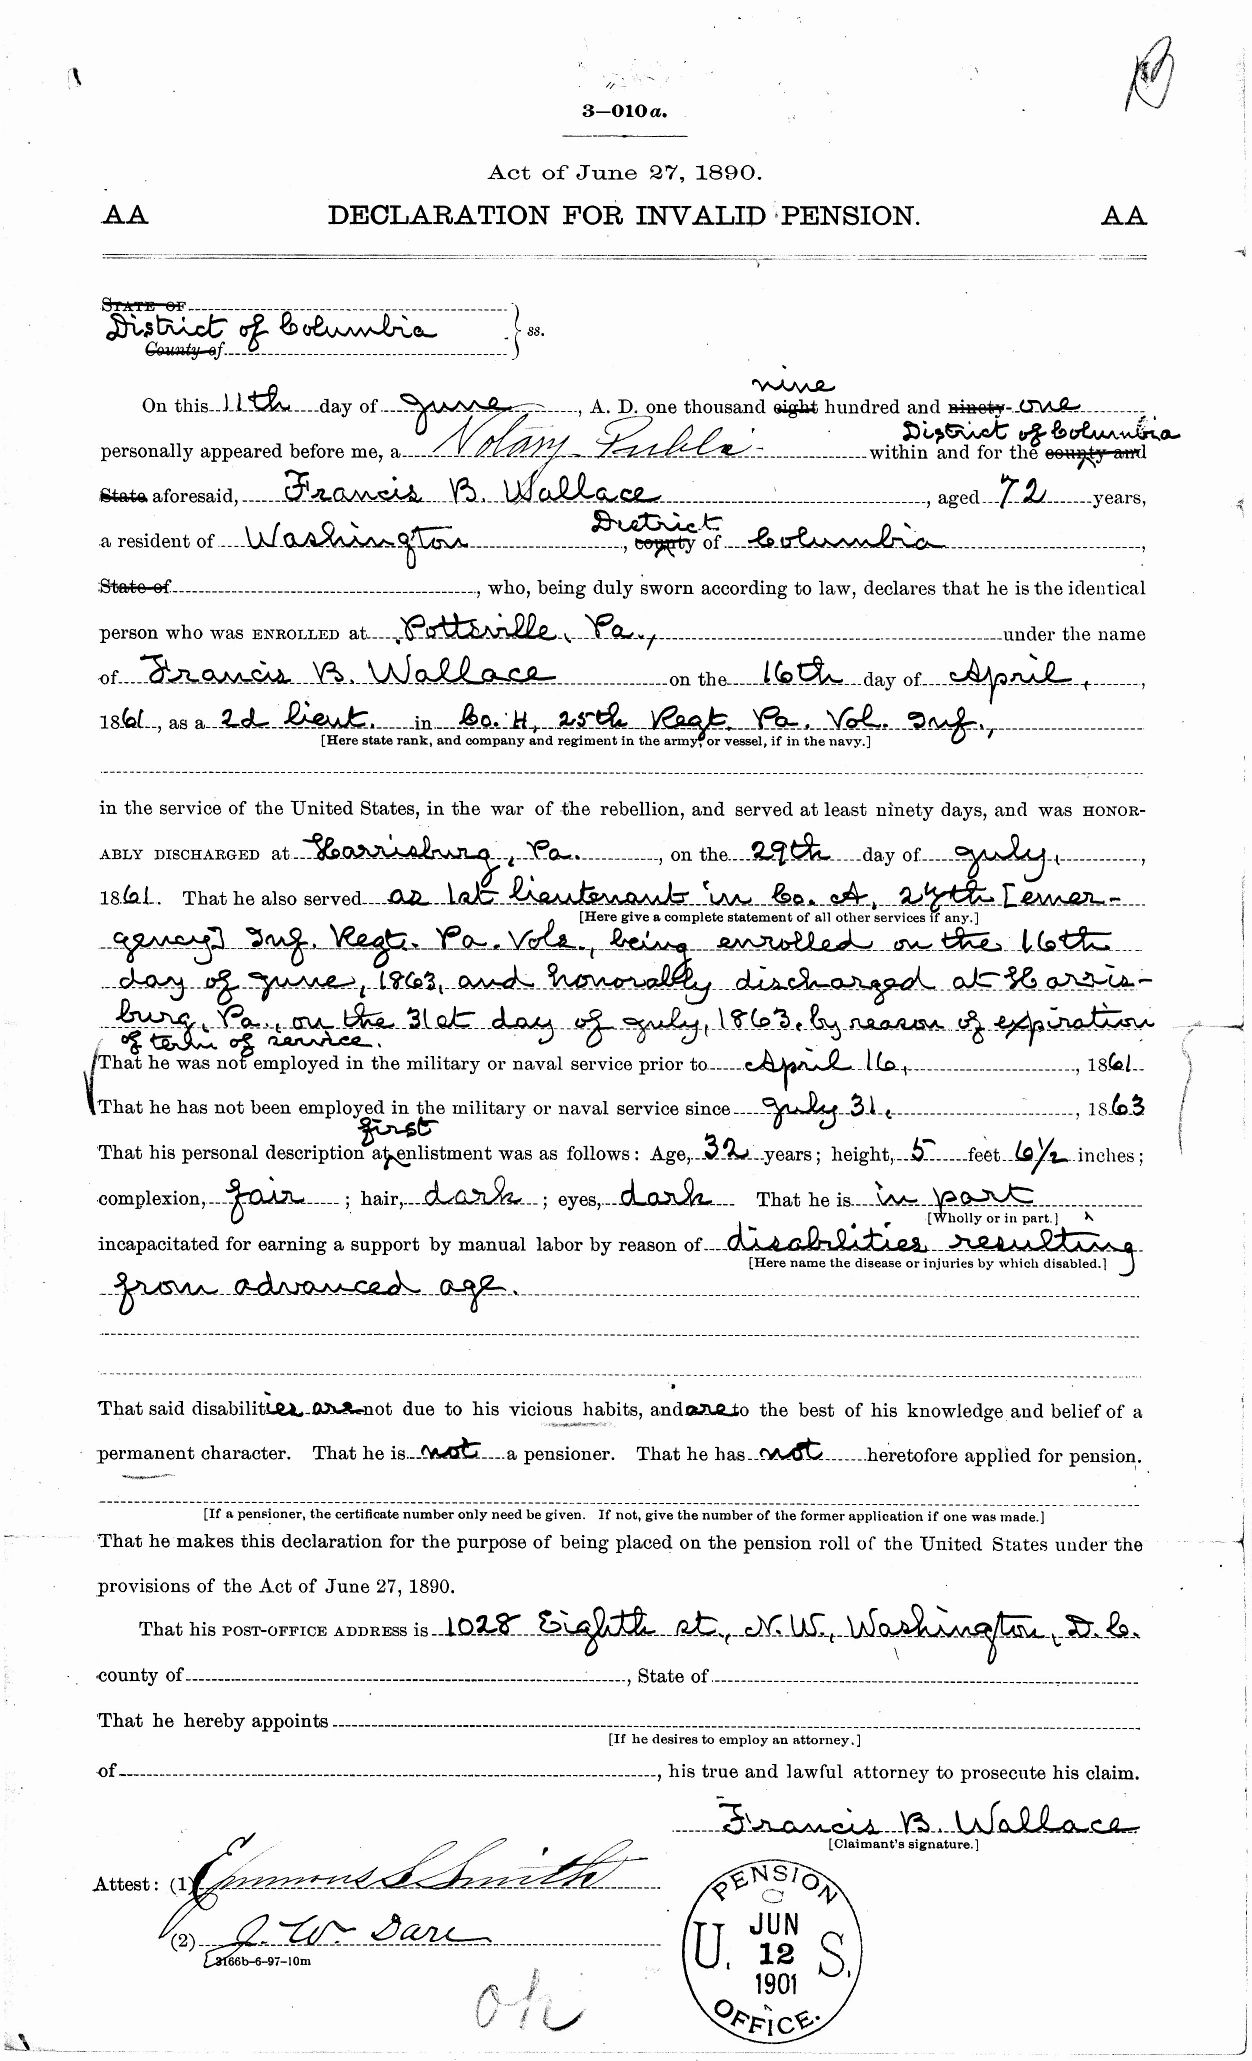 3—010a.
Act of June 27, 1890.
AA DECLARATION FOR INVALID PENSION. AA
STATE OF
District of Columbia } ss.
County of
nine
On this 11th day of June, A. D. one thousand eight hundred and ninety- one
District of Columbia
personally appeared before me, a Notary Public within and for the county and
State aforesaid, Francis B. Wallace, aged 72 years,
District
a resident of Washington, county of Columbia,
State of , who, being duly sworn according to law, declares that he is the identical
person who was ENROLLED at Pottsville, Pa., under the name
of Francis B. Wallace on the 16th day of April,
1861, as a 2d lieut. in Co. H, 25th Regt. Pa. Vol. Inf.,
[Here state rank, and company and regiment in the army, or vessel, if in the navy.]
in the service of the United States, in the war of the rebellion, and served at least ninety days, and was HONOR-
ABLY DISCHARGED at Harrisburg, Pa., on the 29th day of July,
1861. That he also served as 1st lieutenant in Co. A, 27th [emer-
[Here give a complete statement of all other services if any.]
gency] Inf. Regt. Pa. Vols., being enrolled on the 16th
day of June, 1863, and honorably discharged at Harris-
burg, Pa., on the 31st day of July, 1863, by reason of expiration
of term of service.
That he was not employed in the military or naval service prior to April 16, , 1861
That he has not been employed in the military or naval service since July 31, , 1863
first
That his personal description at enlistment was as follows: Age, 32 years; height, 5 feet 6½ inches;
complexion, fair; hair, dark; eyes, dark That he is in part
[Wholly or in part.]
incapacitated for earning a support by manual labor by reason of disabilities resulting
[Here name the disease or injuries by which disabled.]
from advanced age.
That said disabilities are not due to his vicious habits, and are to the best of his knowledge and belief of a
permanent character. That he is not a pensioner. That he has not heretofore applied for pension.
[If a pensioner, the certificate number only need be given. If not, give the number of the former application if one was made.]
That he makes this declaration for the purpose of being placed on the pension roll of the United States under the
provisions of the Act of June 27, 1890.
That his POST-OFFICE ADDRESS is 1028 Eighth st., N.W., Washington, D.C.
county of , State of
That he hereby appoints
[If he desires to employ an attorney.]
of , his true and lawful attorney to prosecute his claim.
Francis B. Wallace
[Claimant's signature.]
Attest: (1) Emmons S Smith
(2) J. W. Dare
3166b-6-97-10m
PENSION
JUN
U. 12 S.
1901
OFFICE.
OK